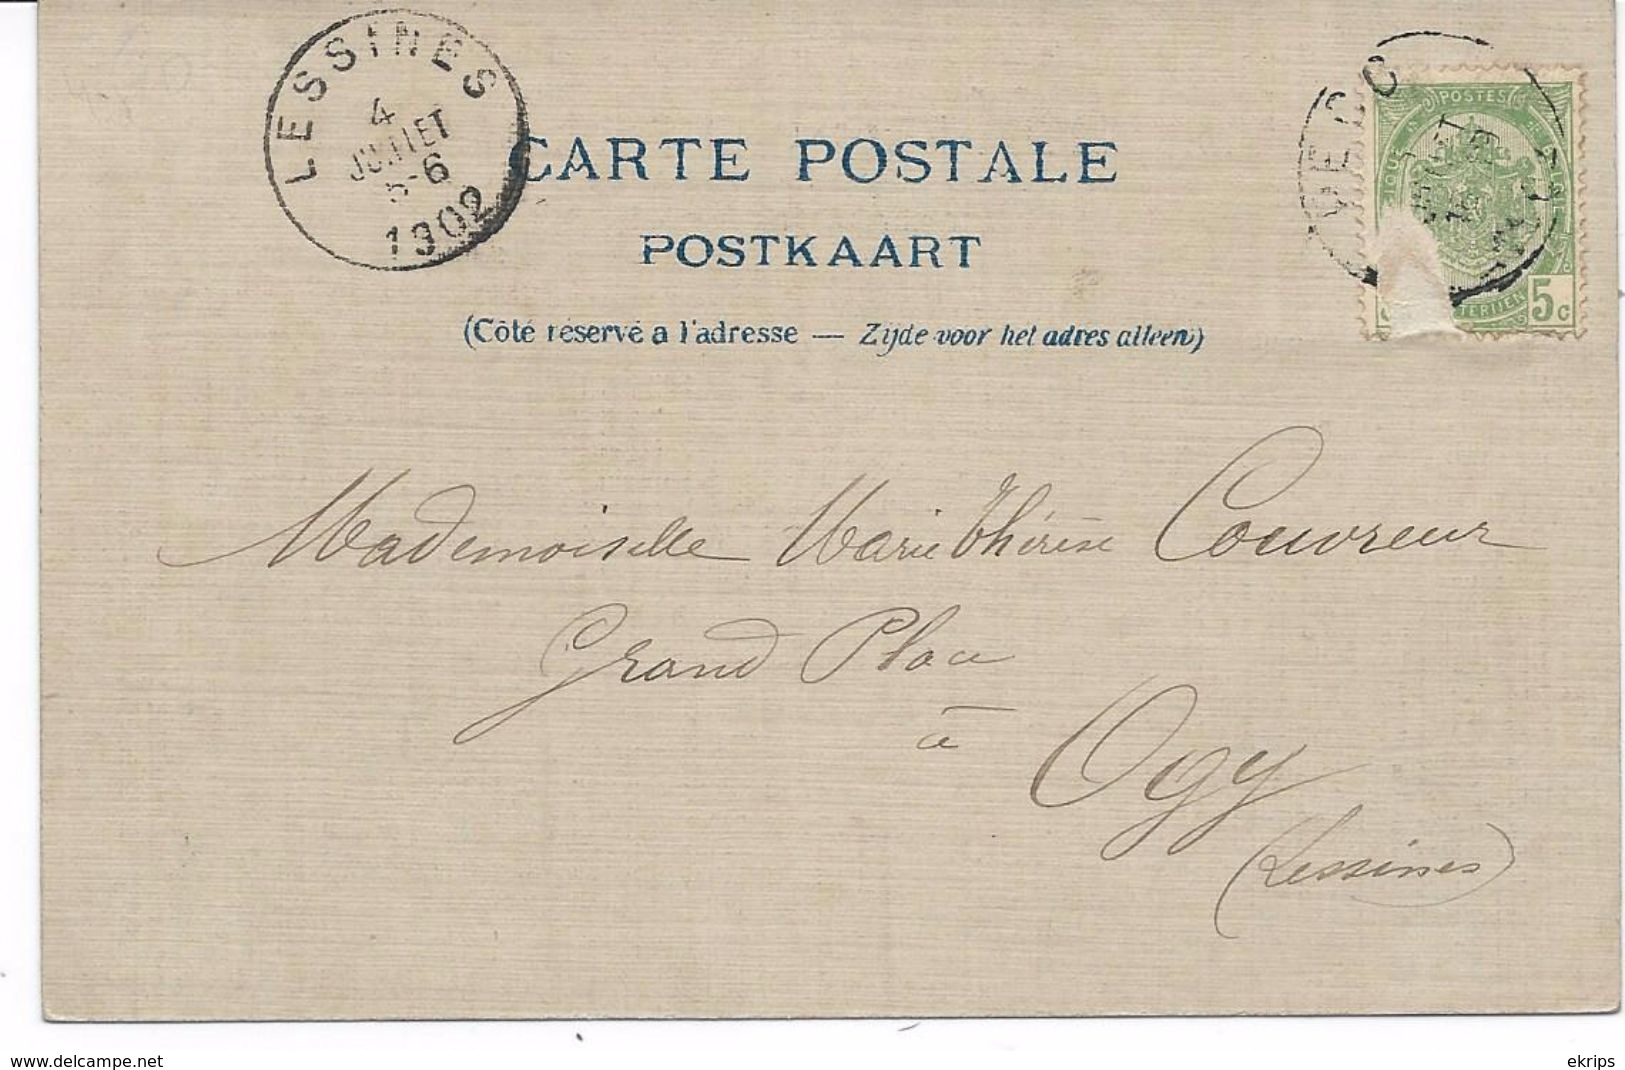 LESSINES
4
JUILLET
5-6
1902
POSTES
5c
CARTE POSTALE
POSTKAART
(Côté réservé a l'adresse — Zijde voor het adres alleen)
Mademoiselle Marie Thérèse Couvreur
Grand Place
à
Ogy
(Lessines)
www.delcampe.net
ekrips